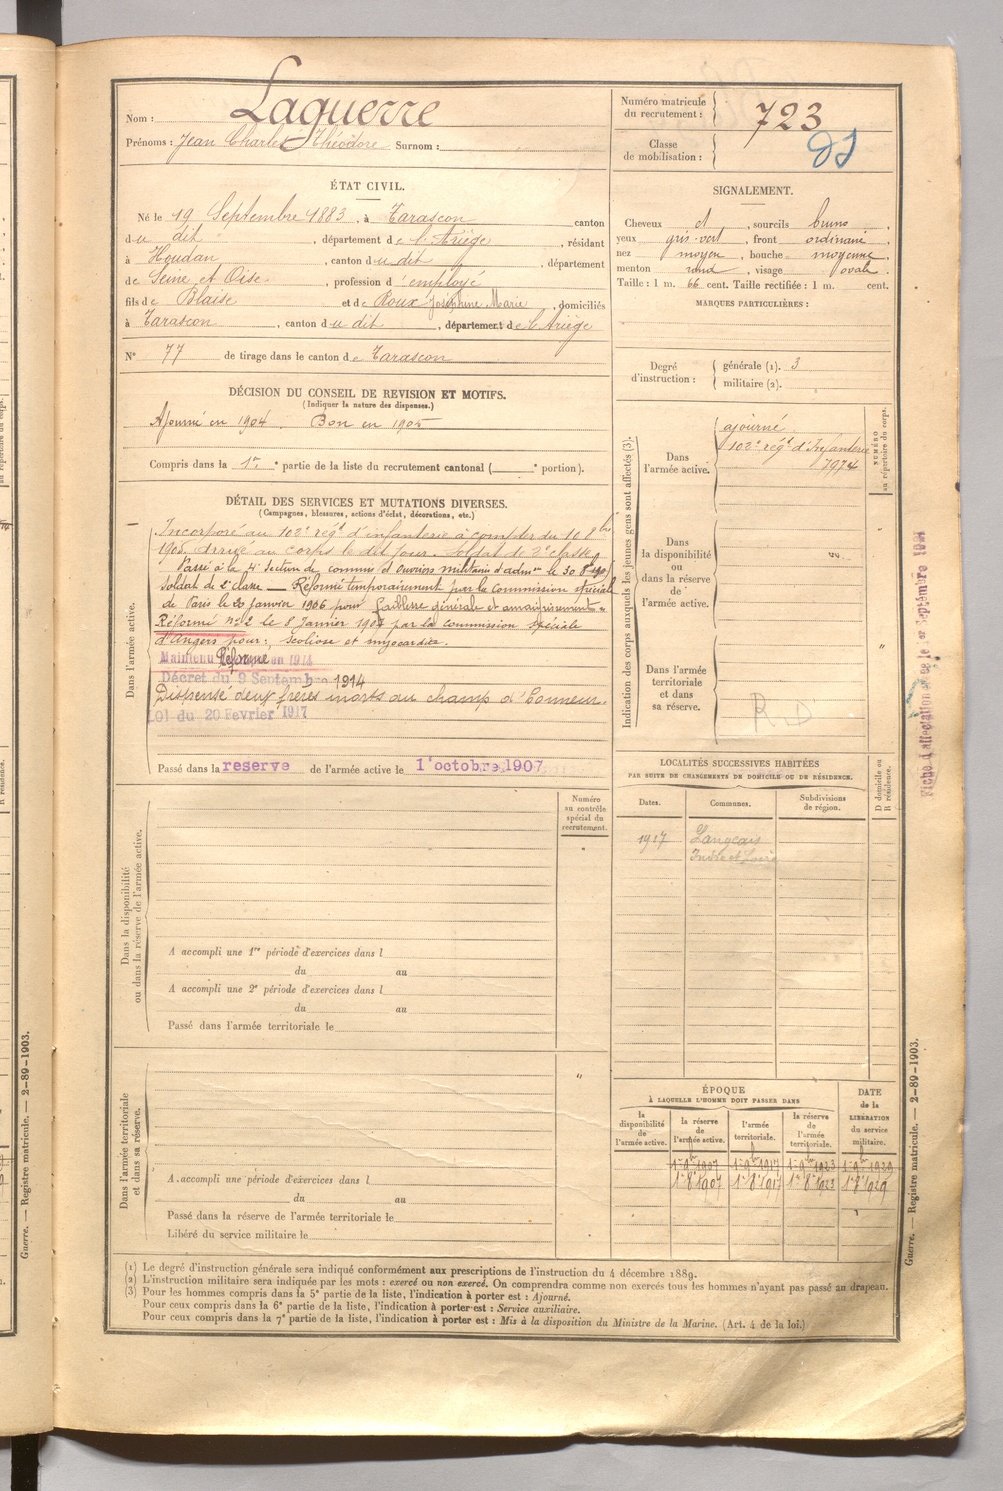 Nom : Laguerre
Prénoms : Jean Charles Théodore Surnom :
Numéro matricule du recrutement : 723
Classe de mobilisation :
ÉTAT CIVIL.
Né le 19 Septembre 1883, à Tarascon canton
du dit, département de l'Ariège, résidant
à Houdan, canton du dit, département
de Seine et Oise, profession d'employé
fils de Blaise et de Roux Joséphine Marie, domiciliés
à Tarascon, canton du dit, département de l'Ariège
N° 77 de tirage dans le canton de Tarascon
SIGNALEMENT.
Cheveux d, sourcils bruns
yeux gris-vert, front ordinaire
nez moyen, bouche moyenne
menton rond, visage ovale.
Taille : 1 m. 66 cent. Taille rectifiée : 1 m. cent.
MARQUES PARTICULIÈRES :
Degré d'instruction : générale (1). 3
militaire (2).
DÉCISION DU CONSEIL DE REVISION ET MOTIFS.
(Indiquer la nature des dispenses.)
Ajourné en 1904. Bon en 1905
Compris dans la 1re partie de la liste du recrutement cantonal ( e portion).
DÉTAIL DES SERVICES ET MUTATIONS DIVERSES.
(Campagnes, blessures, actions d'éclat, décorations, etc.)
Dans l'armée active.
Incorporé au 102e régt d'infanterie à compter du 10 8bre
1905, arrivé au corps le dit jour. Soldat de 2e classe
Passé à la 4e Section de commis et ouvriers militaires d'admon le 30 8bre 1905
Soldat de 2e classe — Réformé temporairement par la Commission spéciale
de Paris le 20 janvier 1906 pour faiblesse générale et amaigrissement
Réformé n° 2 le 8 Janvier 1907 par la commission spéciale
d'Angers pour : scoliose et myocardite.
Maintenu Réformé en 1914
Décret du 9 Septembre 1914
Dispensé deux frères morts au champ d'honneur.
Loi du 20 Fevrier 1917
Passé dans la reserve de l'armée active le 1er octobre 1907
Indication des corps auxquels les jeunes gens sont affectés (3).
NUMÉRO au répertoire du corps.
Dans l'armée active.
ajourné
102e régt d'Infanterie
7974
Dans la disponibilité ou dans la réserve de l'armée active.
Dans l'armée territoriale et dans sa réserve.
R D
Fiche d'affectation
LOCALITÉS SUCCESSIVES HABITÉES
PAR SUITE DE CHANGEMENTS DE DOMICILE OU DE RÉSIDENCE.
Dates. Communes. Subdivisions de région. D domicile ou R résidence.
1917 Langeais
Indre et Loire
Dans la disponibilité ou dans la réserve de l'armée active.
Numéro au contrôle spécial du recrutement.
A accompli une 1re période d'exercices dans l
du au
A accompli une 2e période d'exercices dans l
du au
Passé dans l'armée territoriale le
Dans l'armée territoriale et dans sa réserve.
A accompli une période d'exercices dans l
du au
Passé dans la réserve de l'armée territoriale le
Libéré du service militaire le
ÉPOQUE
À LAQUELLE L'HOMME DOIT PASSER DANS
la disponibilité de l'armée active. la réserve de l'armée active. l'armée territoriale. la réserve de l'armée territoriale. DATE de la LIBÉRATION du service militaire.
1er 9bre 1907 1er 9bre 1917 1er 9bre 1923 1er 9bre 1929
1er 8bre 1907 1er 8bre 1917 1er 8bre 1923 1er 8bre 1929
(1) Le degré d'instruction générale sera indiqué conformément aux prescriptions de l'instruction du 4 décembre 1889.
(2) L'instruction militaire sera indiquée par les mots : exercé ou non exercé. On comprendra comme non exercés tous les hommes n'ayant pas passé au drapeau.
(3) Pour les hommes compris dans la 5e partie de la liste, l'indication à porter est : Ajourné.
Pour ceux compris dans la 6e partie de la liste, l'indication à porter est : Service auxiliaire.
Pour ceux compris dans la 7e partie de la liste, l'indication à porter est : Mis à la disposition du Ministre de la Marine. (Art. 4 de la loi.)
Guerre. — Registre matricule. — 2-89-1903.
Guerre. — Registre matricule. — 2-89-1903.